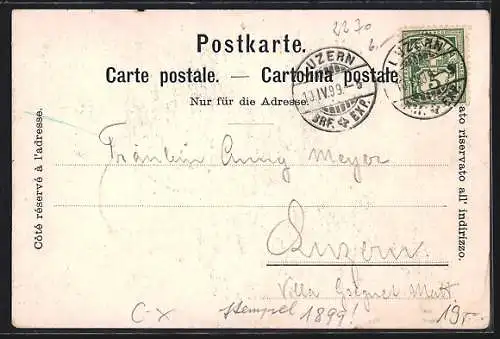 2270
6.
Postkarte.
Carte postale. — Cartolina postale.
Nur für die Adresse.
LUZERN
13.IV.99-9
BRF. EXP.
LUZERN
EXP.
Côté réservé à l'adresse.
ato riservato all' indirizzo.
Fräulein Anny Meyer
Luzern.
Villa
C-X
Stempel 1899!
19.-